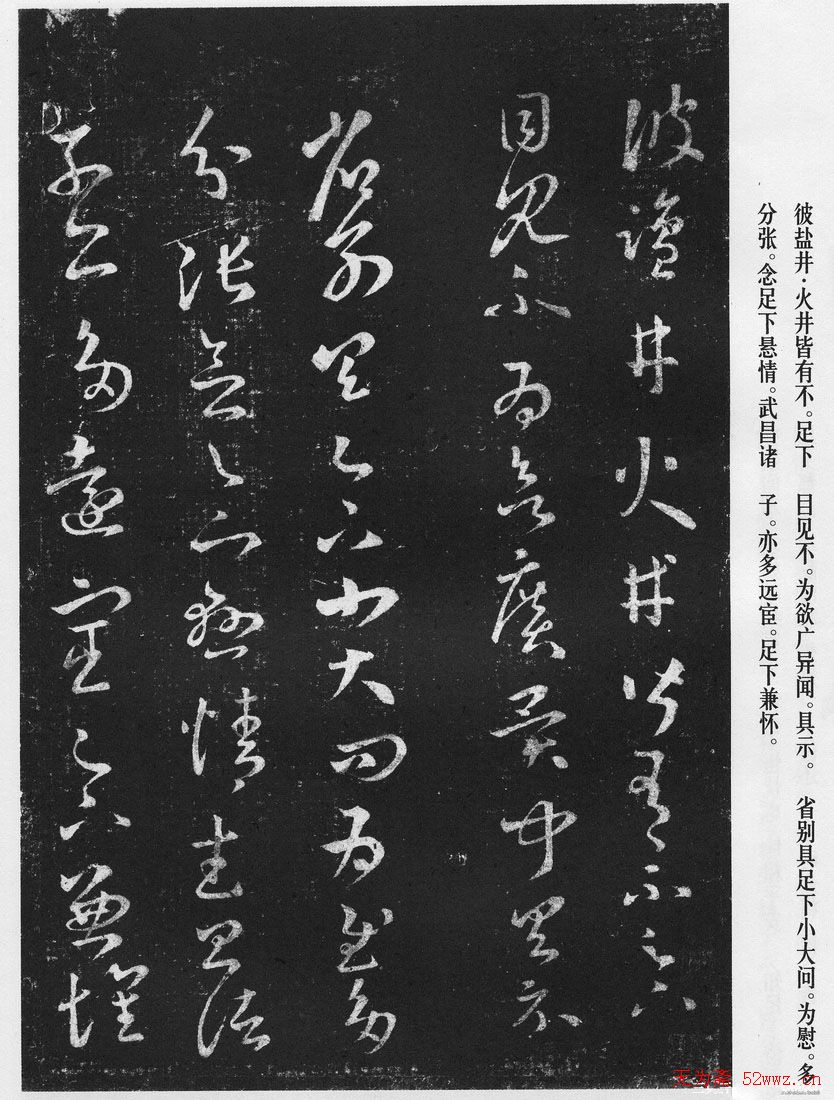 彼盐井·火井皆有不。足下　目见不。为欲广异闻。具示。　省别具足下小大问。为慰。多
分张。念足下悬情。武昌诸　子。亦多远宦。足下兼怀。
彼鹽井火井皆有不足下
目見不為欲廣異聞具示
省別具足下小大問為慰多
分張念足下懸情武昌諸
子亦多遠宦足下兼懷
天为斋 52wwz.cn